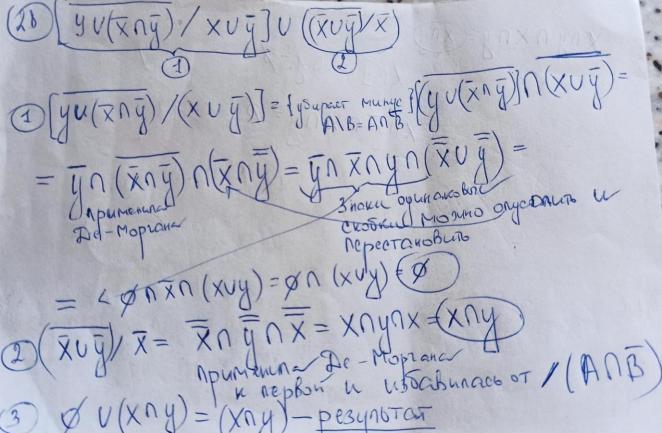 28 [y∪(x̅∩y̅) / x∪y̅] ∪ (x̅∪y̅ / x̅)
1 2
① [y∪(x̅∩y̅) / (x∪y̅)] = {убирает минус A\B=A∩B̅} [(y∪(x̅∩y̅)] ∩ (x∪y̅) =
= y̅∩(x̅∩y̅)∩(x̅∩y̿) = y̅∩x̅∩y∩(x̿∪y̿) =
применила Де-Моргана
Знаки одинаковые скобки можно опустить и переставить
= < ∅∩x̅∩(x∪y) = ∅∩(x∪y) = ∅
② (x̅∪y̅)/x̅ = x̿∩y̿∩x̿ = x∩y∩x = x∩y
применила Де-Моргана
к первой и избавилась от / (A∩B̅)
③ ∅ ∪ (x∩y) = (x∩y) – результат